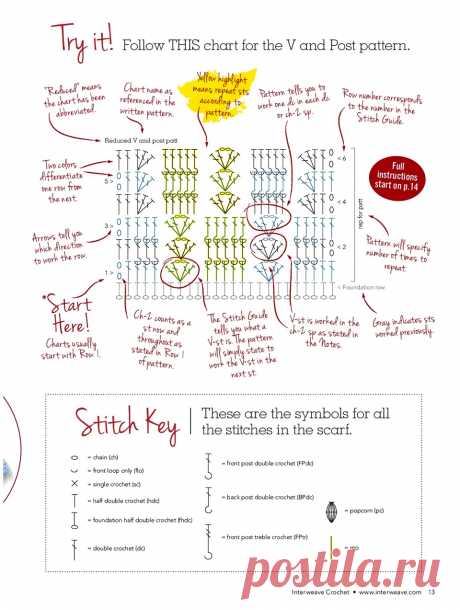 Try it! Follow THIS chart for the V and Post pattern.
"Reduced" means
the chart has been
abbreviated.
Chart name as
referenced in the
written pattern.
Yellow highlight
means repeat sts
according to
pattern.
Pattern tells you to
work one dc in each dc
or ch-2 sp.
Row number corresponds
to the number in the
Stitch Guide.
Reduced V and post patt
Two colors
differentiate
one row from
the next.
Full
instructions
start on p.14
< 6
5 >
< 4
3 >
< 2
1 >
rep for patt
Arrows tell you
which direction
to work the row.
Pattern will specify
number of times to
repeat.
< Foundation row
*Start
Here!
Charts usually
start with Row 1.
Ch-2 counts as a
st now and
throughout as
stated in Row 1
of pattern.
The Stitch Guide
tells you what a
V-st is. The pattern
will simply state to
work the V-st in the
next st.
V-st is worked in the
ch-2 sp as stated in
the Notes.
Gray indicates sts
worked previously.
Stitch Key
These are the symbols for all
the stitches in the scarf.
= chain (ch)
= front loop only (flo)
= single crochet (sc)
= half double crochet (hdc)
= foundation half double crochet (fhdc)
= double crochet (dc)
= front post double crochet (FPdc)
= back post double crochet (BPdc)
= front post treble crochet (FPtr)
= popcorn (pc)
Interweave Crochet • www.interweave.com 13
postila.ru